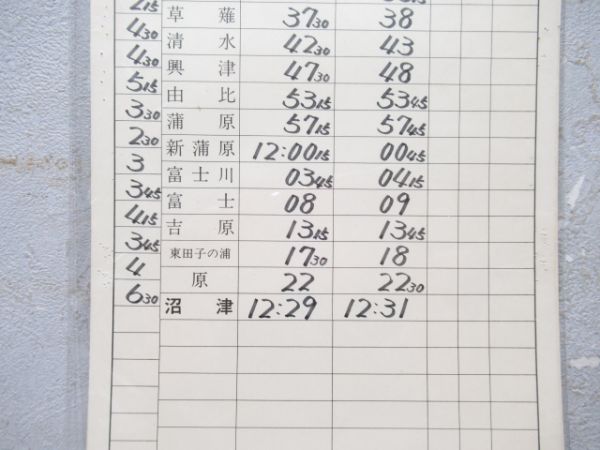 2 15
草薙 37 30 38
4 30
清水 42 30 43
4 30
興津 47 30 48
5 15
由比 53 15 53 45
3 30
蒲原 57 15 57 45
2 30
新蒲原 12:00 15 00 45
3
富士川 03 45 04 15
3 45
富士 08 09
4 15
吉原 13 15 13 45
3 45
東田子の浦 17 30 18
4
原 22 22 30
6 30
沼津 12:29 12:31